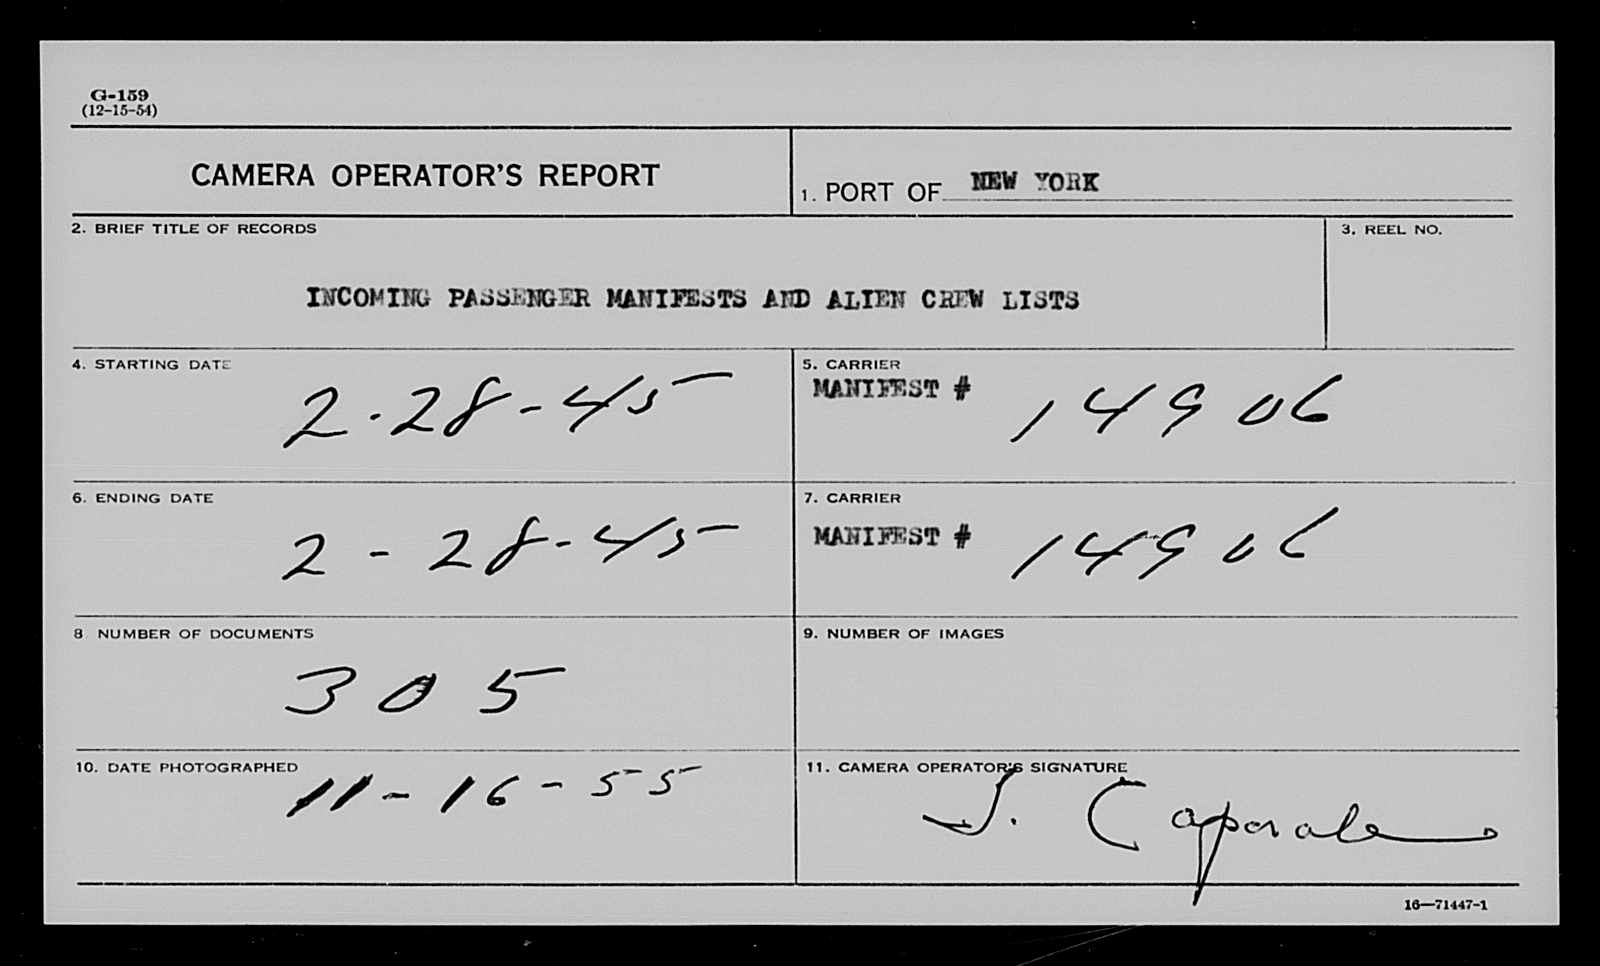 G-159
(12-15-54)
CAMERA OPERATOR'S REPORT
1. PORT OF NEW YORK
2. BRIEF TITLE OF RECORDS
3. REEL NO.
INCOMING PASSENGER MANIFESTS AND ALIEN CREW LISTS
4. STARTING DATE
2-28-45
5. CARRIER
MANIFEST # 14906
6. ENDING DATE
2-28-45
7. CARRIER
MANIFEST # 14906
8 NUMBER OF DOCUMENTS
305
9. NUMBER OF IMAGES
10. DATE PHOTOGRAPHED
11-16-55
11. CAMERA OPERATOR'S SIGNATURE
S. Caporale
16—71447-1